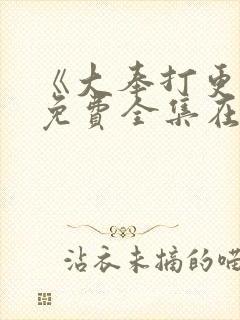 《大奉打更
免费全集在
沾衣未摘的喵